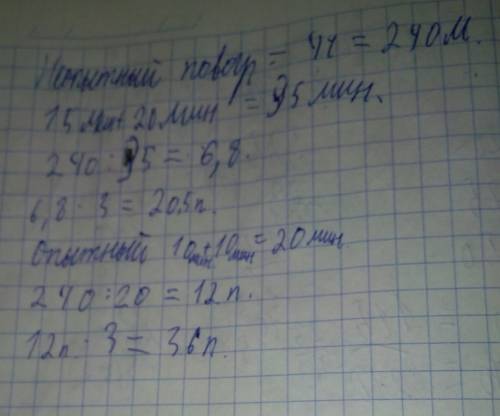 Неопытный повар = 4ч = 240м.
15мин+20мин = 35мин.
240:35 = 6,8.
6,8 · 3 = 20,5п.
Опытный 10мин+10мин=20мин
240:20 = 12п.
12п · 3 = 36п.